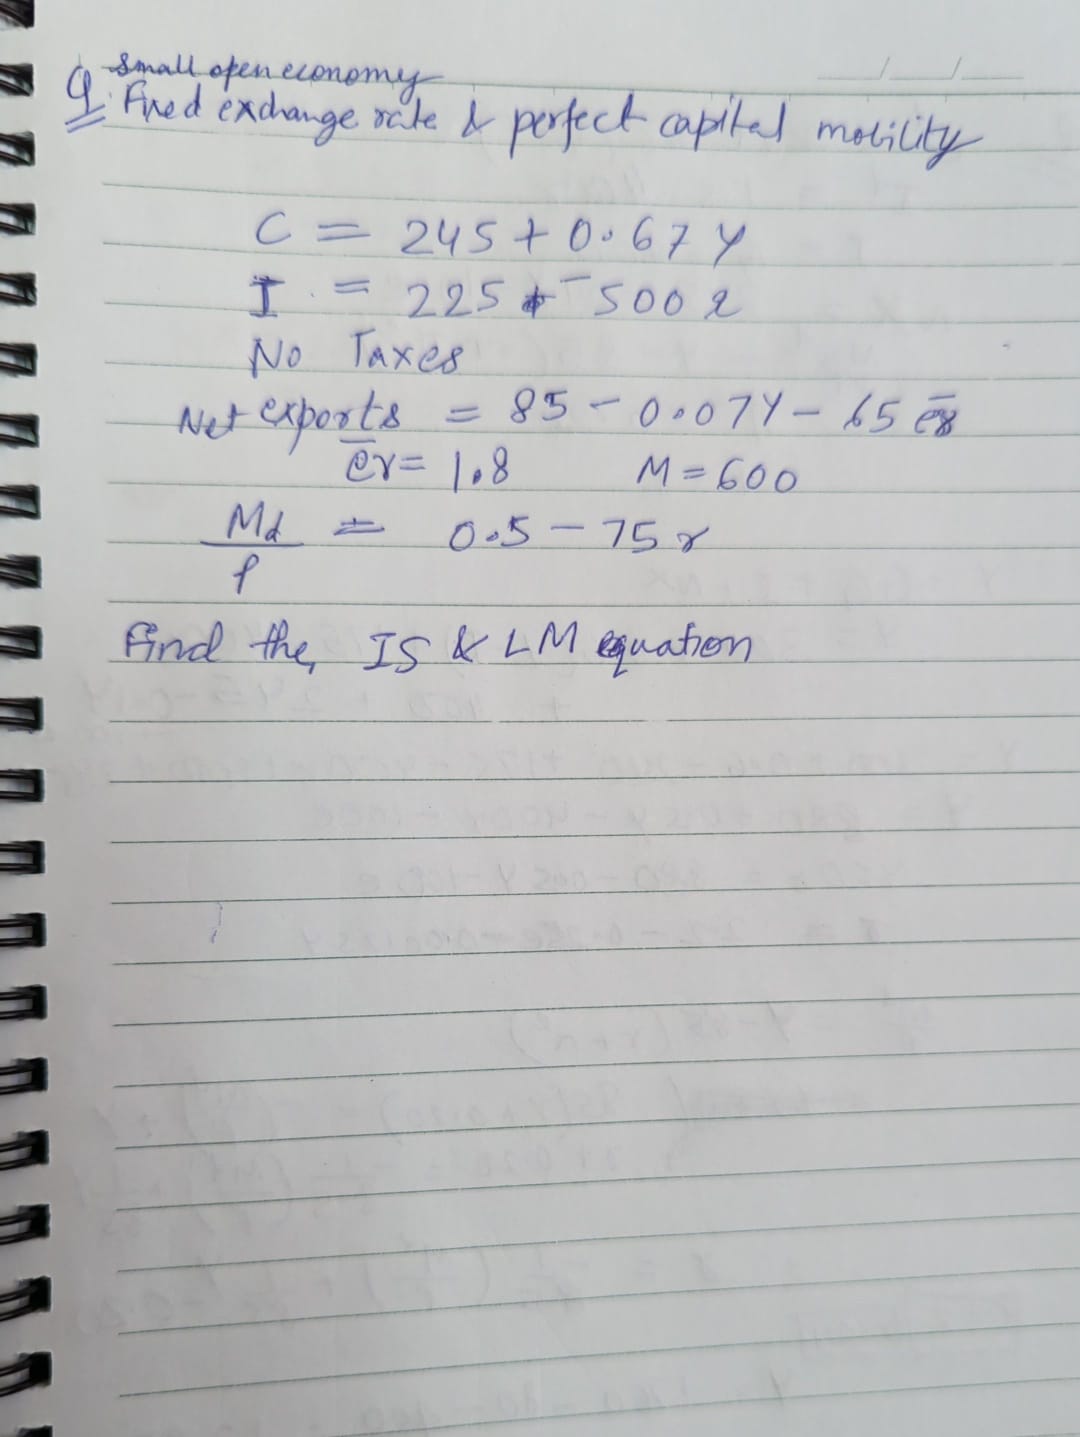 Small open economy
Q. Fixed exchange rate & perfect capital mobility
C = 245 + 0.67 Y
I = 225 - 500 r
No Taxes
Net exports = 85 - 0.07Y - 65 er
er = 1.8 M = 600
Md
P = 0.5 - 75 r
Find the IS & LM equation